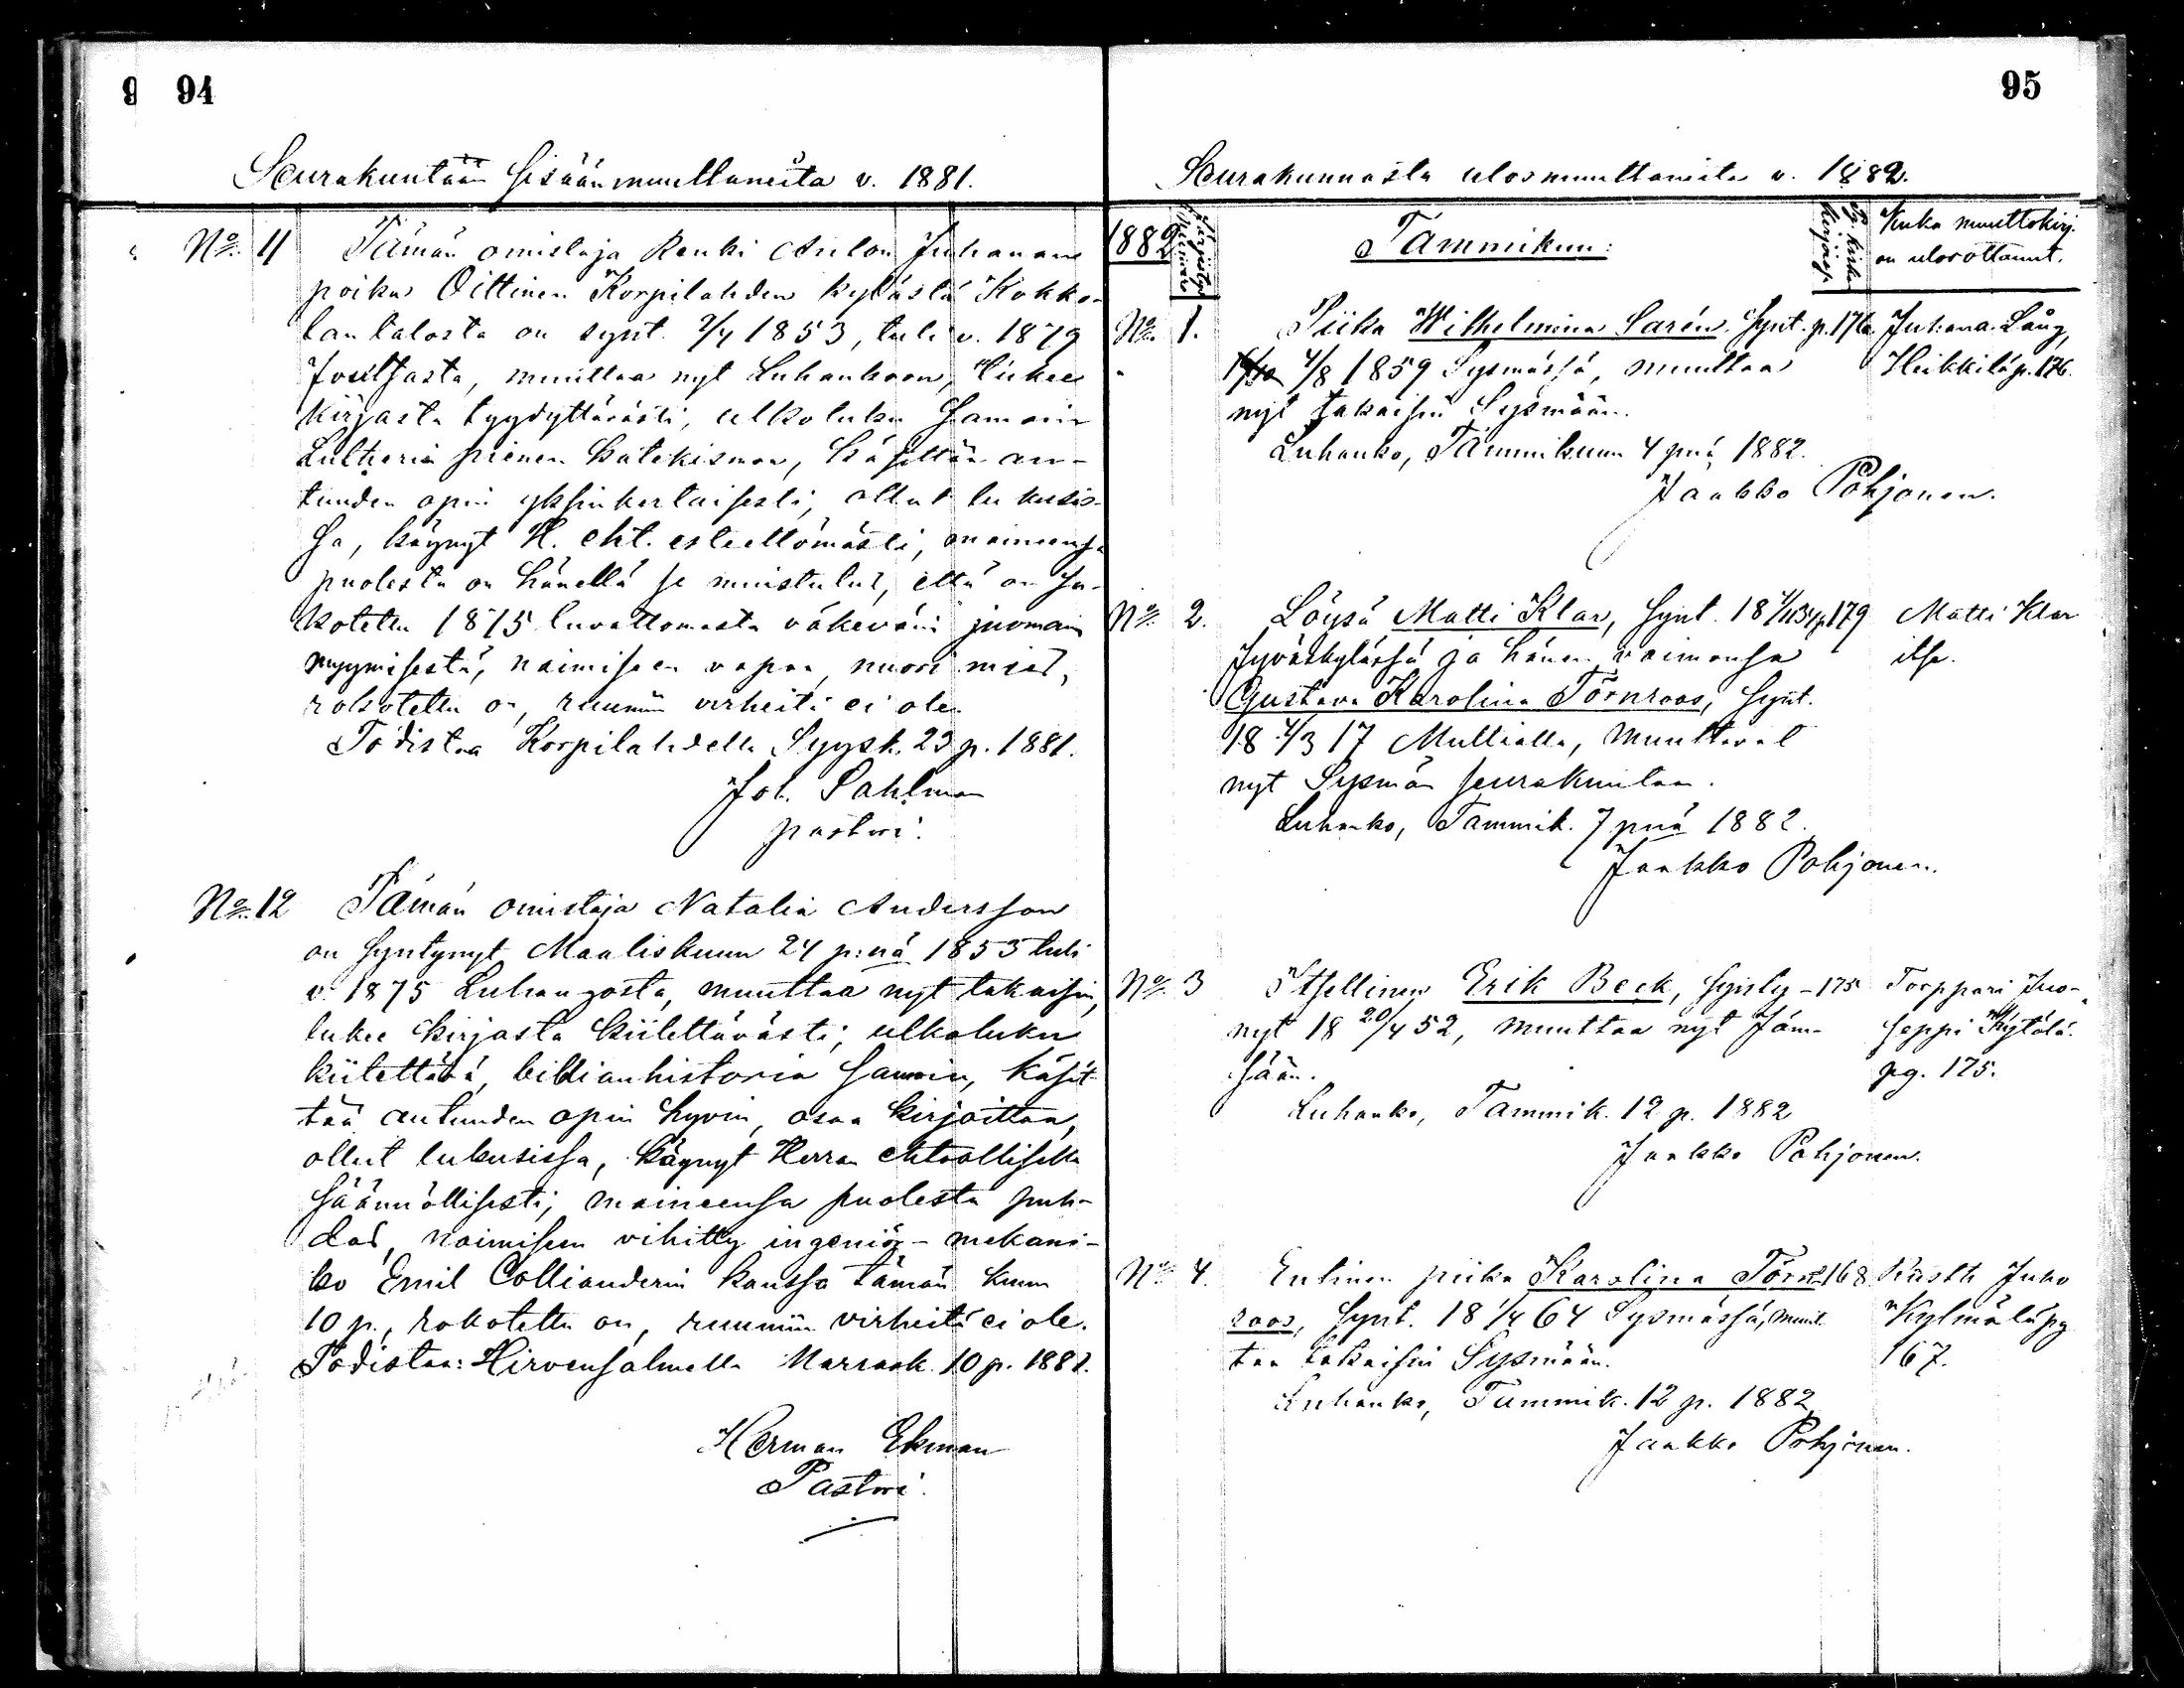 94
Seurakuntaan sisäänmuuttaneita v. 1881.
No 11 Tämän omistaja Renki Anton Juhanan
poika Oittinen Korpilahden kylästä Kokko-
lan talosta on synt. 2/4 1853, tuli v. 1879
Joutsasta, muuttaa nyt Luhankoon, lukee
kirjasta tyydyttävästi, ulkoluku samoin
Lutherin pienen katekismon, käsittää au-
tuuden opin yksinkertaisesti, ollut lukusis-
sa, käynyt H. eht. esteettömästi, maineensa
puolesta on hänellä se muistutus, että on sa-
kotettu 1875 luvattomasta väkeväin juomain
myymisestä, naimiseen vapaa, nuori mies,
rokotettu on, ruumiin virheitä ei ole.
Todistaa Korpilahdella Syysk. 23 p. 1881.
Joh. Pahlman
pastori.
No 12 Tämän omistaja Natalia Andersson
on syntynyt Maaliskuun 24 p:nä 1853 tuli
v. 1875 Luhangosta, muuttaa nyt takaisin,
lukee kirjasta kiitettävästi, ulkoluku
kiitettävä, biblianhistoria samoin, käsit-
tää autuuden opin hyvin, osaa kirjoittaa,
ollut lukusissa, käynyt Herran ehtoollisella
säännöllisesti, maineensa puolesta puh-
das, naimiseen vihitty ingeniör-mekani-
ko Emil Collianderin kanssa tämän kuun
10 p., rokotettu on, ruumiin virheitä ei ole.
Todistaa: Hirvensalmella Marrask. 10 p. 1881.
Herman Ekman
Pastori.
95
Seurakunnasta ulosmuuttaneita v. 1882.
1882 Tammikuu: Kuka muuttokirj.
on ulosottanut.
No 1. Piika Wilhelmina Sarén, Synt. p. 176 Juhana Lång,
4/8 1859 Sysmässä, muuttaa Heikkilä p. 176.
nyt takaisin Sysmään.
Luhanko, Tammikuun 4 pnä 1882.
Jaakko Pohjonen.
No 2. Löysä Matti Klar, synt. 179 Matti Klar
Jyväskylässä ja hänen vaimonsa itse.
Gustava Karolina Törnroos, synt.
18 4/3 17 Multialla, muuttavat
nyt Sysmän seurakuntaan.
Luhanko, Tammik. 7 pnä 1882.
Jaakko Pohjonen.
No 3 Itsellinen Erik Beck, synty- 175 Torppari Juo-
nyt 18 20/4 52, muuttaa nyt Jäm- seppi Kytölä
sään. pg. 175.
Luhanko, Tammik. 12 p. 1882
Jaakko Pohjonen.
No 4. Entinen piika Karolina Törn- 168 Rusth Juho
roos, synt. 18 1/4 64 Sysmässä, muut- Kylmälä pg
taa takaisin Sysmään. 167.
Luhanko, Tammik. 12 p. 1882
Jaakko Pohjonen.